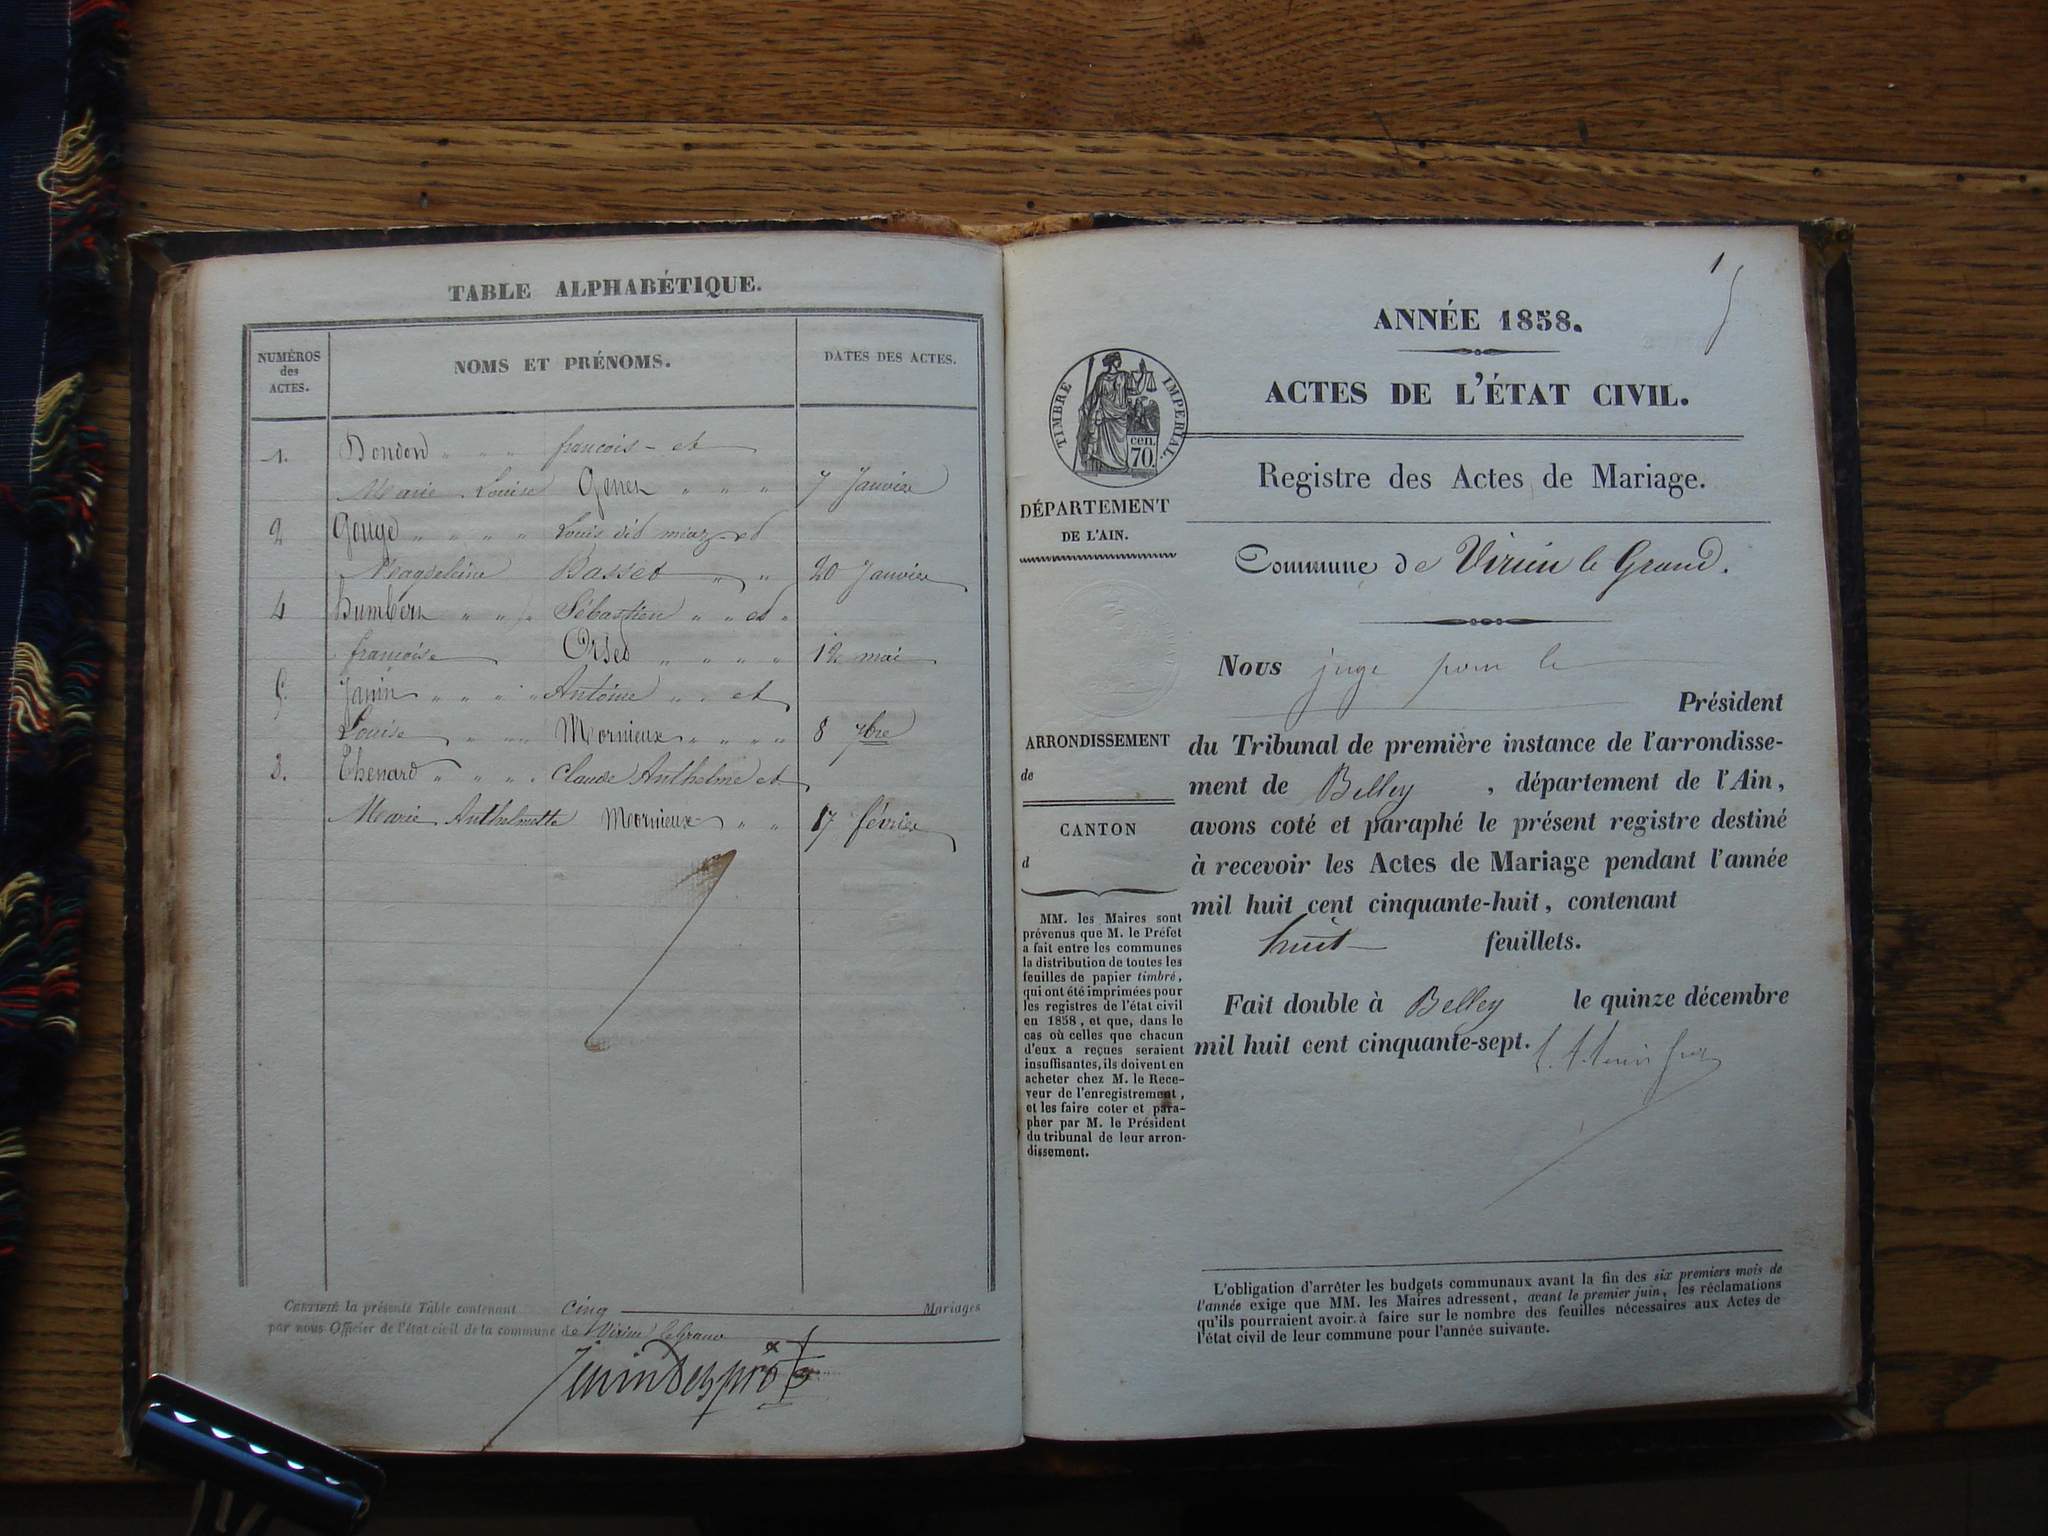 TABLE ALPHABÉTIQUE.
NUMÉROS
des
ACTES.
NOMS ET PRÉNOMS.
DATES DES ACTES.
1. françois - et
Marie Louise 7 Janvier
2 Gouge " " " " Louis dit et
Magdeleine Basset " " 20 Janvier
4 " " " Sébastien " " et "
françoise Orset " " " " 12 mai
5. Janin " " " " " Antoine " " et
Louise " " " Mornieux " " " " 8 7bre
3. Thenard " " " " Claude Anthelme et
Marie Anthelmette Mornieux " " 17 février
CERTIFIÉ la présente Table contenant cinq Mariages
par nous Officier de l'état civil de la commune de Virieu le Grand
1
ANNÉE 1858.
ACTES DE L'ÉTAT CIVIL.
TIMBRE IMPÉRIAL.
cen.
70.
Registre des Actes de Mariage.
DÉPARTEMENT
DE L'AIN.
Commune de Virieu le Grand.
ARRONDISSEMENT
de
CANTON
d
MM. les Maires sont
prévenus que M. le Préfet
a fait entre les communes
la distribution de toutes les
feuilles de papier timbré,
qui ont été imprimées pour
les registres de l'état civil
en 1858, et que, dans le
cas où celles que chacun
d'eux a reçues seraient
insuffisantes, ils doivent en
acheter chez M. le Rece-
veur de l'enregistrement,
et les faire coter et para-
pher par M. le Président
du tribunal de leur arron-
dissement.
Nous juge pour le
Président
du Tribunal de première instance de l'arrondisse-
ment de Belley, département de l'Ain,
avons coté et paraphé le présent registre destiné
à recevoir les Actes de Mariage pendant l'année
mil huit cent cinquante-huit, contenant
huit feuillets.
Fait double à Belley le quinze décembre
mil huit cent cinquante-sept.
L'obligation d'arrêter les budgets communaux avant la fin des six premiers mois de
l'année exige que MM. les Maires adressent, avant le premier juin, les réclamations
qu'ils pourraient avoir à faire sur le nombre des feuilles nécessaires aux Actes de
l'état civil de leur commune pour l'année suivante.